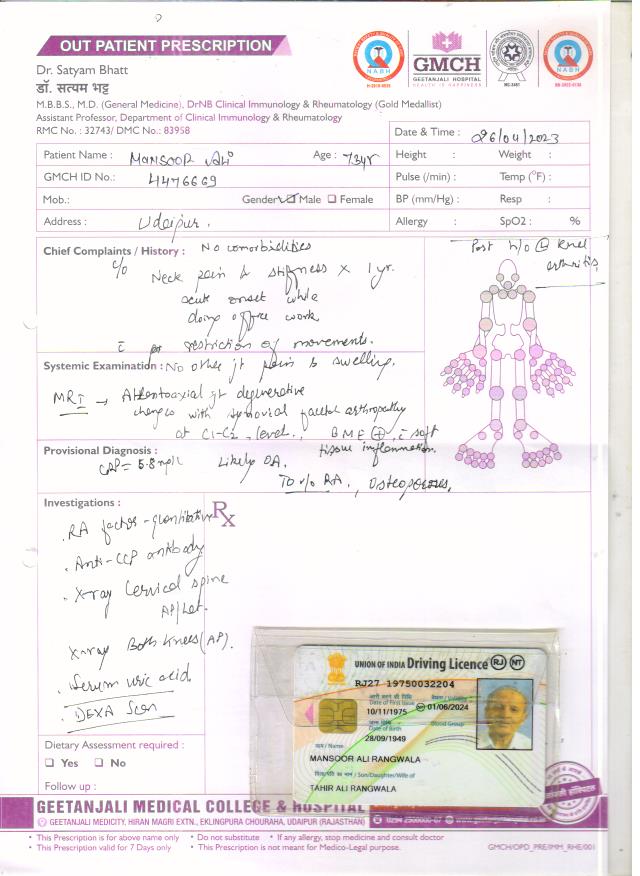 OUT PATIENT PRESCRIPTION
NABH
H-2019-0639
GMCH
GEETANJALI HOSPITAL
HEALTH IS HAPPINESS
Dr. Satyam Bhatt
डॉ. सत्यम भट्ट
M.B.B.S., M.D. (General Medicine), DrNB Clinical Immunology & Rheumatology (Gold Medallist)
Assistant Professor, Department of Clinical Immunology & Rheumatology
RMC No. : 32743/ DMC No.: 83958
Date & Time : 06/04/2023
Patient Name : MANSOOR ALI Age : 73yr Height : Weight :
GMCH ID No.: 4476669 Pulse (/min) : Temp (°F) :
Mob.: Gender Male Female BP (mm/Hg) : Resp :
Address : Udaipur. Allergy : SpO2 : %
Chief Complaints / History : No comorbidities
Post h/o knee
arthritis,
c/o Neck pain & stiffness x 1 yr.
acute onset while
doing office work
restriction of movements.
Systemic Examination : No other jt pain & swelling.
MRI → Atlantoaxial jt degenerative
changes with synovial facetal arthropathy
at C1-C2, level., BME ⊕, c̄ soft
tissue inflammation.
Provisional Diagnosis :
CRP = 5.8 mg/L Likely OA.
To r/o RA, Osteoporosis,
Investigations : Rx
. RA factor - quantitative
. Anti-CCP antibody
. X-ray Cervical spine
AP/Lat.
X-ray Both Knees (AP).
. Serum uric acid
. DEXA Scan
UNION OF INDIA Driving Licence RJ NT
RJ27 19750032204
जारी करने की तिथि
Date of First Issue
10/11/1975
01/06/2024
जन्म तिथि
Date of Birth
Blood Group
28/09/1949
नाम / Name
MANSOOR ALI RANGWALA
Son/Daughter/Wife of
TAHIR ALI RANGWALA
Dietary Assessment required :
Yes No
Follow up :
GEETANJALI MEDICAL COLLEGE & HOSPITAL
GEETANJALI MEDICITY, HIRAN MAGRI EXTN., EKLINGPURA CHOURAHA, UDAIPUR (RAJASTHAN)
• This Prescription is for above name only • Do not substitute • If any allergy, stop medicine and consult doctor
• This Prescription valid for 7 Days only • This Prescription is not meant for Medico-Legal purpose.
GMCH/OPD_PRE/IMM_RHE/001